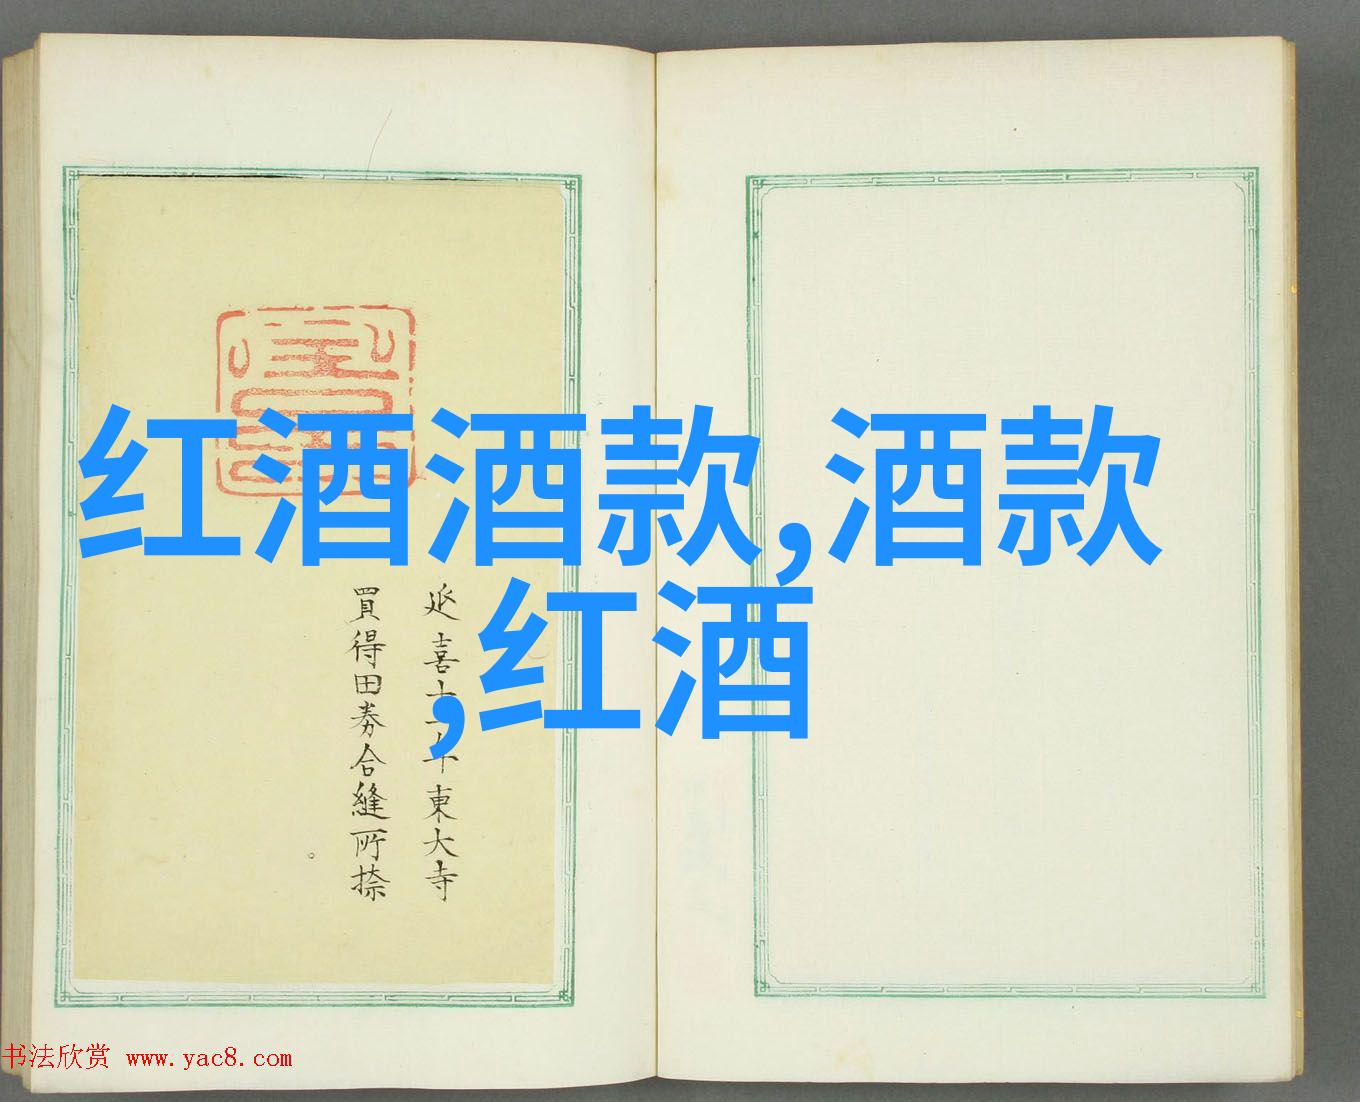 红酒酒款,酒款
,红酒
延喜十一年東大寺
買得田券合縫所捺
书法欣赏 www.yac8.com